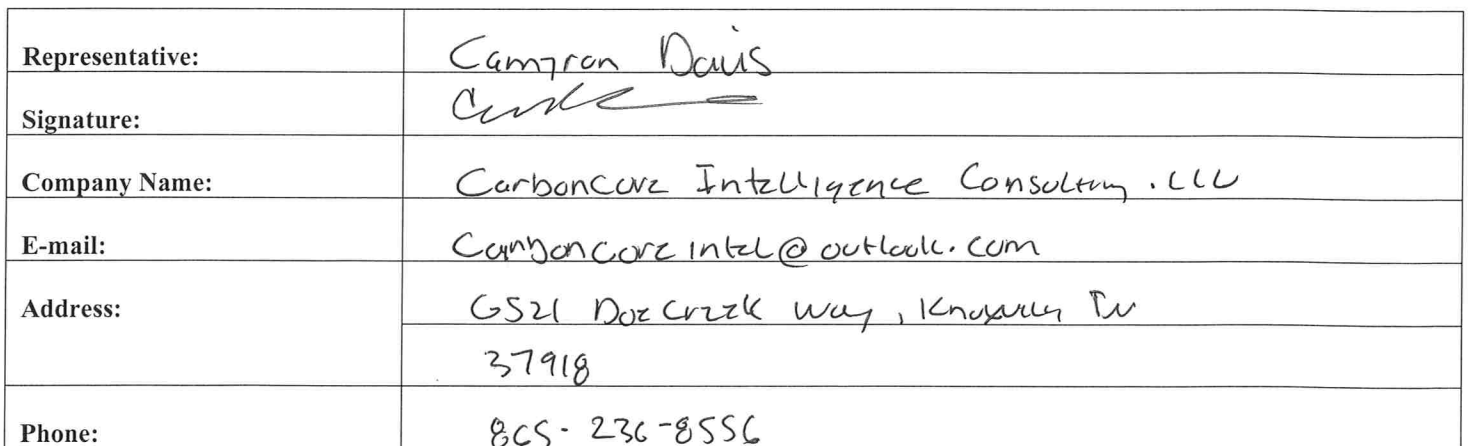 Representative: Camyron Davis
Signature:
Company Name: CarbonCore Intelligence Consulting, LLC
E-mail: Carboncoreintel@outlook.com
Address: 6521 Doe Creek Way, Knoxville TN
37918
Phone: 865-236-8556